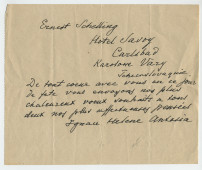 Ernest Schelling
Hotel Savoy
Carlsbad
Karlovy Vary
Tchecoslovaquie
De tout coeur avec vous en ce jour
de fete vous envoyons nos plus
chaleureux voeux souhaits a tous
deux nos plus affectueuses pensees
Ignace Helene Antosia